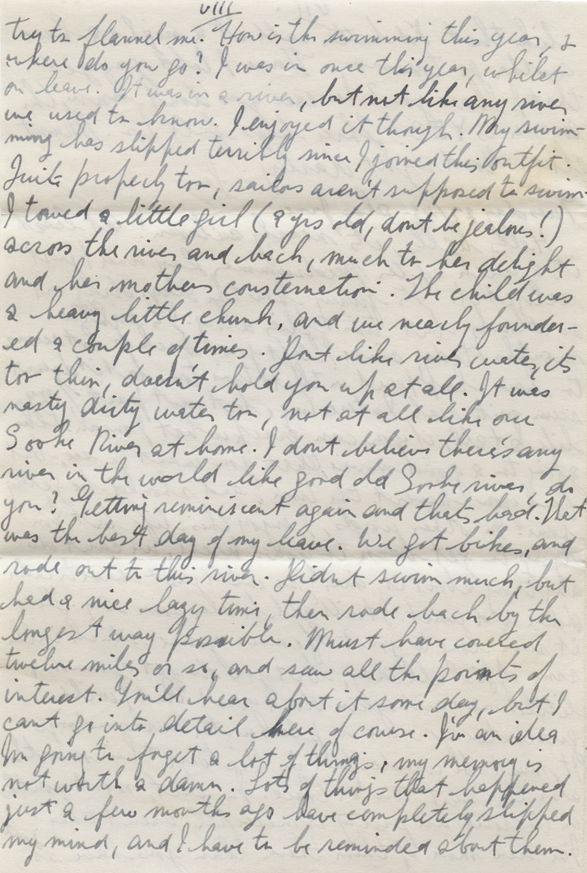 VIII
try to flannel me. How is the swimming this year, &
where do you go? I was in once this year, whilst
on leave. It was in a river, but not like any river
we used to know. I enjoyed it though. My swim-
ming has slipped terribly since I joined this outfit.
Quite properly too, sailors aren't supposed to swim.
I towed a little girl (9 yrs old, dont be jealous!)
across the river and back, much to her delight
and her mothers consternation. The child was
a heavy little chunk, and we nearly founder-
ed a couple of times. Dont like river water, its
too thin, doesn't hold you up at all. It was
nasty dirty water too, not at all like our
Sooke River at home. I dont believe there's any
river in the world like good old Sooke river, do
you? Getting reminiscent again and thats bad. That
was the best day of my leave. We got bikes, and
rode out to this river. Didnt swim much, but
had a nice lazy time, then rode back by the
longest way possible. Must have covered
twelve miles or so, and saw all the points of
interest. You'll hear about it some day, but I
cant go into detail here of course. I've an idea
I'm going to forget a lot of things, my memory is
not worth a damn. Lots of things that happened
just a few months ago have completely slipped
my mind, and I have to be reminded about them.